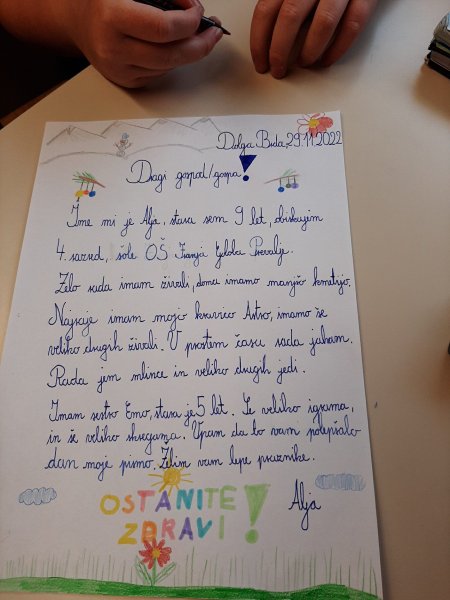 Dolga Brda, 29.11.2022
Dragi gospod/gospa!
Ime mi je Alja, stara sem 9 let, obiskujem
4. razred, šole OŠ Franja Goloba Prevalje.
Zelo rada imam živali, doma imamo manjšo kmetijo.
Najraje imam mojo kravico Astro, imamo še
veliko drugih živali. V prostem času rada jaham.
Rada jem mlince in veliko drugih jedi.
Imam sestro Emo, stara je 5 let. Se veliko igrama,
in še veliko skregama. Upam da bo vam polepšalo
dan moje pismo. Želim vam lepe praznike.
Alja
OSTANITE
ZDRAVI!